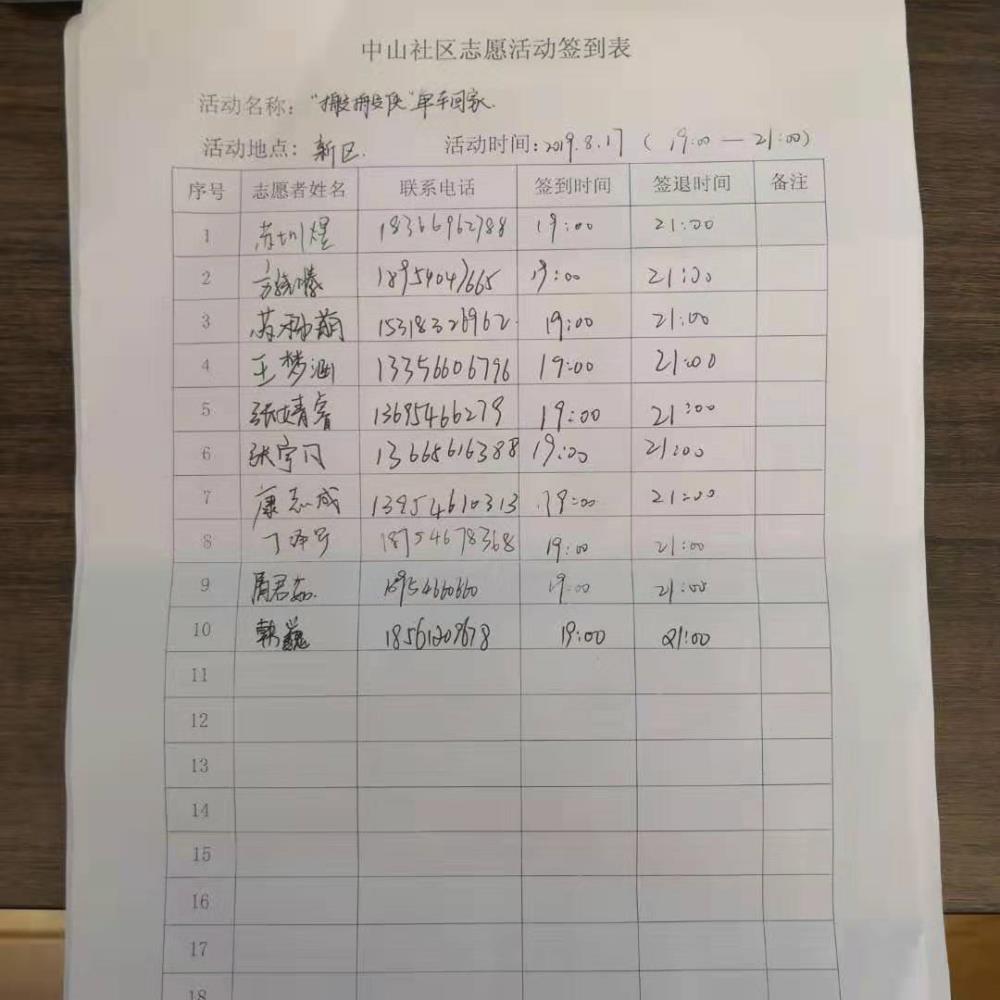 中山社区志愿活动签到表
活动名称："搬搬侠"单车回家
活动地点：新区. 活动时间：2019.8.17 ( 19:00 — 21:00)
序号 志愿者姓名 联系电话 签到时间 签退时间 备注
1 苏圳煜 18366962788 19:00 21:00
2 18954047665 19:00 21:00
3 15318326962 19:00 21:00
4 王梦涵 13356606796 19:00 21:00
5 张婧睿 13695466279 19:00 21:00
6 张宇闪 13665616388 19:00 21:00
7 康志成 13954610313 19:00 21:00
8 18754678368 19:00 21:00
9 周君茹. 18954660660 19:00 21:00
10 韩巍 18561209678 19:00 21:00
11
12
13
14
15
16
17
18